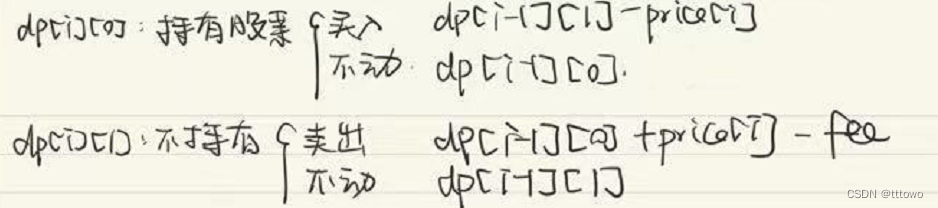 dp[i][0]: 持有股票 { 买入 dp[i-1][1]-price[i]
不动. dp[i-1][0].
dp[i][1]: 不持有 { 卖出 dp[i-1][0]+price[i]-fee
不动 dp[i-1][1]
CSDN @tttowo